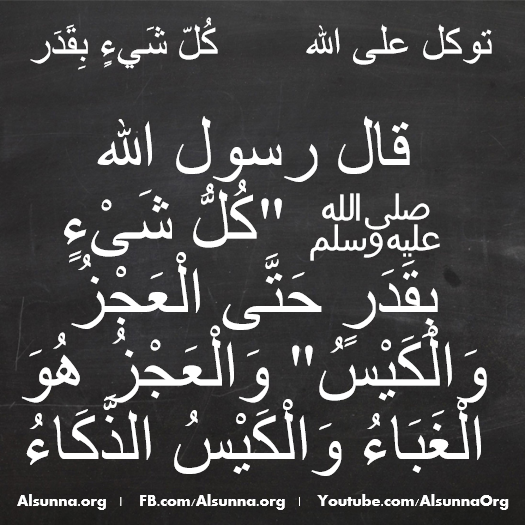 توكل على الله كُلّ شَيءٍ بِقَدَر
قال رسول الله
صلى الله عليه وسلم "كُلُّ شَىْءٍ
بِقَدَرٍ حَتَّى الْعَجْزُ
وَالْكَيْسُ" وَالْعَجْزُ هُوَ
الْغَبَاءُ وَالْكَيْسُ الذَّكَاءُ
Alsunna.org | FB.com/Alsunna.org | Youtube.com/AlsunnaOrg